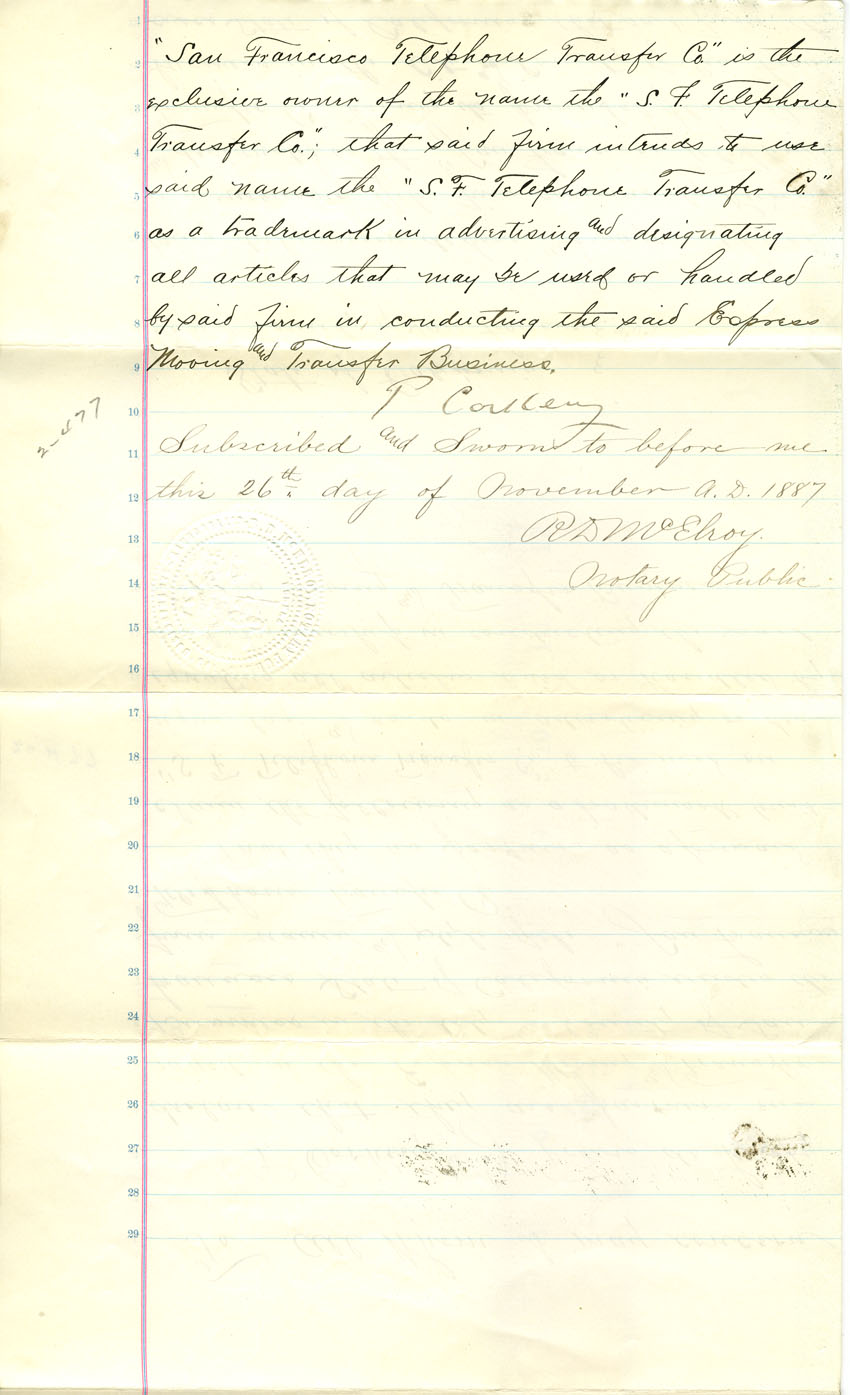 "San Francisco Telephone Transfer Co" is the
exclusive owner of the name the "S. F. Telephone
Transfer Co."; that said firm intends to use
said name the "S. F. Telephone Transfer Co."
as a trademark in advertising and designating
all articles that may be used or handled
by said firm in conducting the said Express
Moving and Transfer Business.
P Corkery
Subscribed and Sworn to before me
this 26th day of November A. D. 1887
R D McElroy.
Notary Public.
1
2
3
4
5
6
7
8
9
10
11
12
13
14
15
16
17
18
19
20
21
22
23
24
25
26
27
28
29